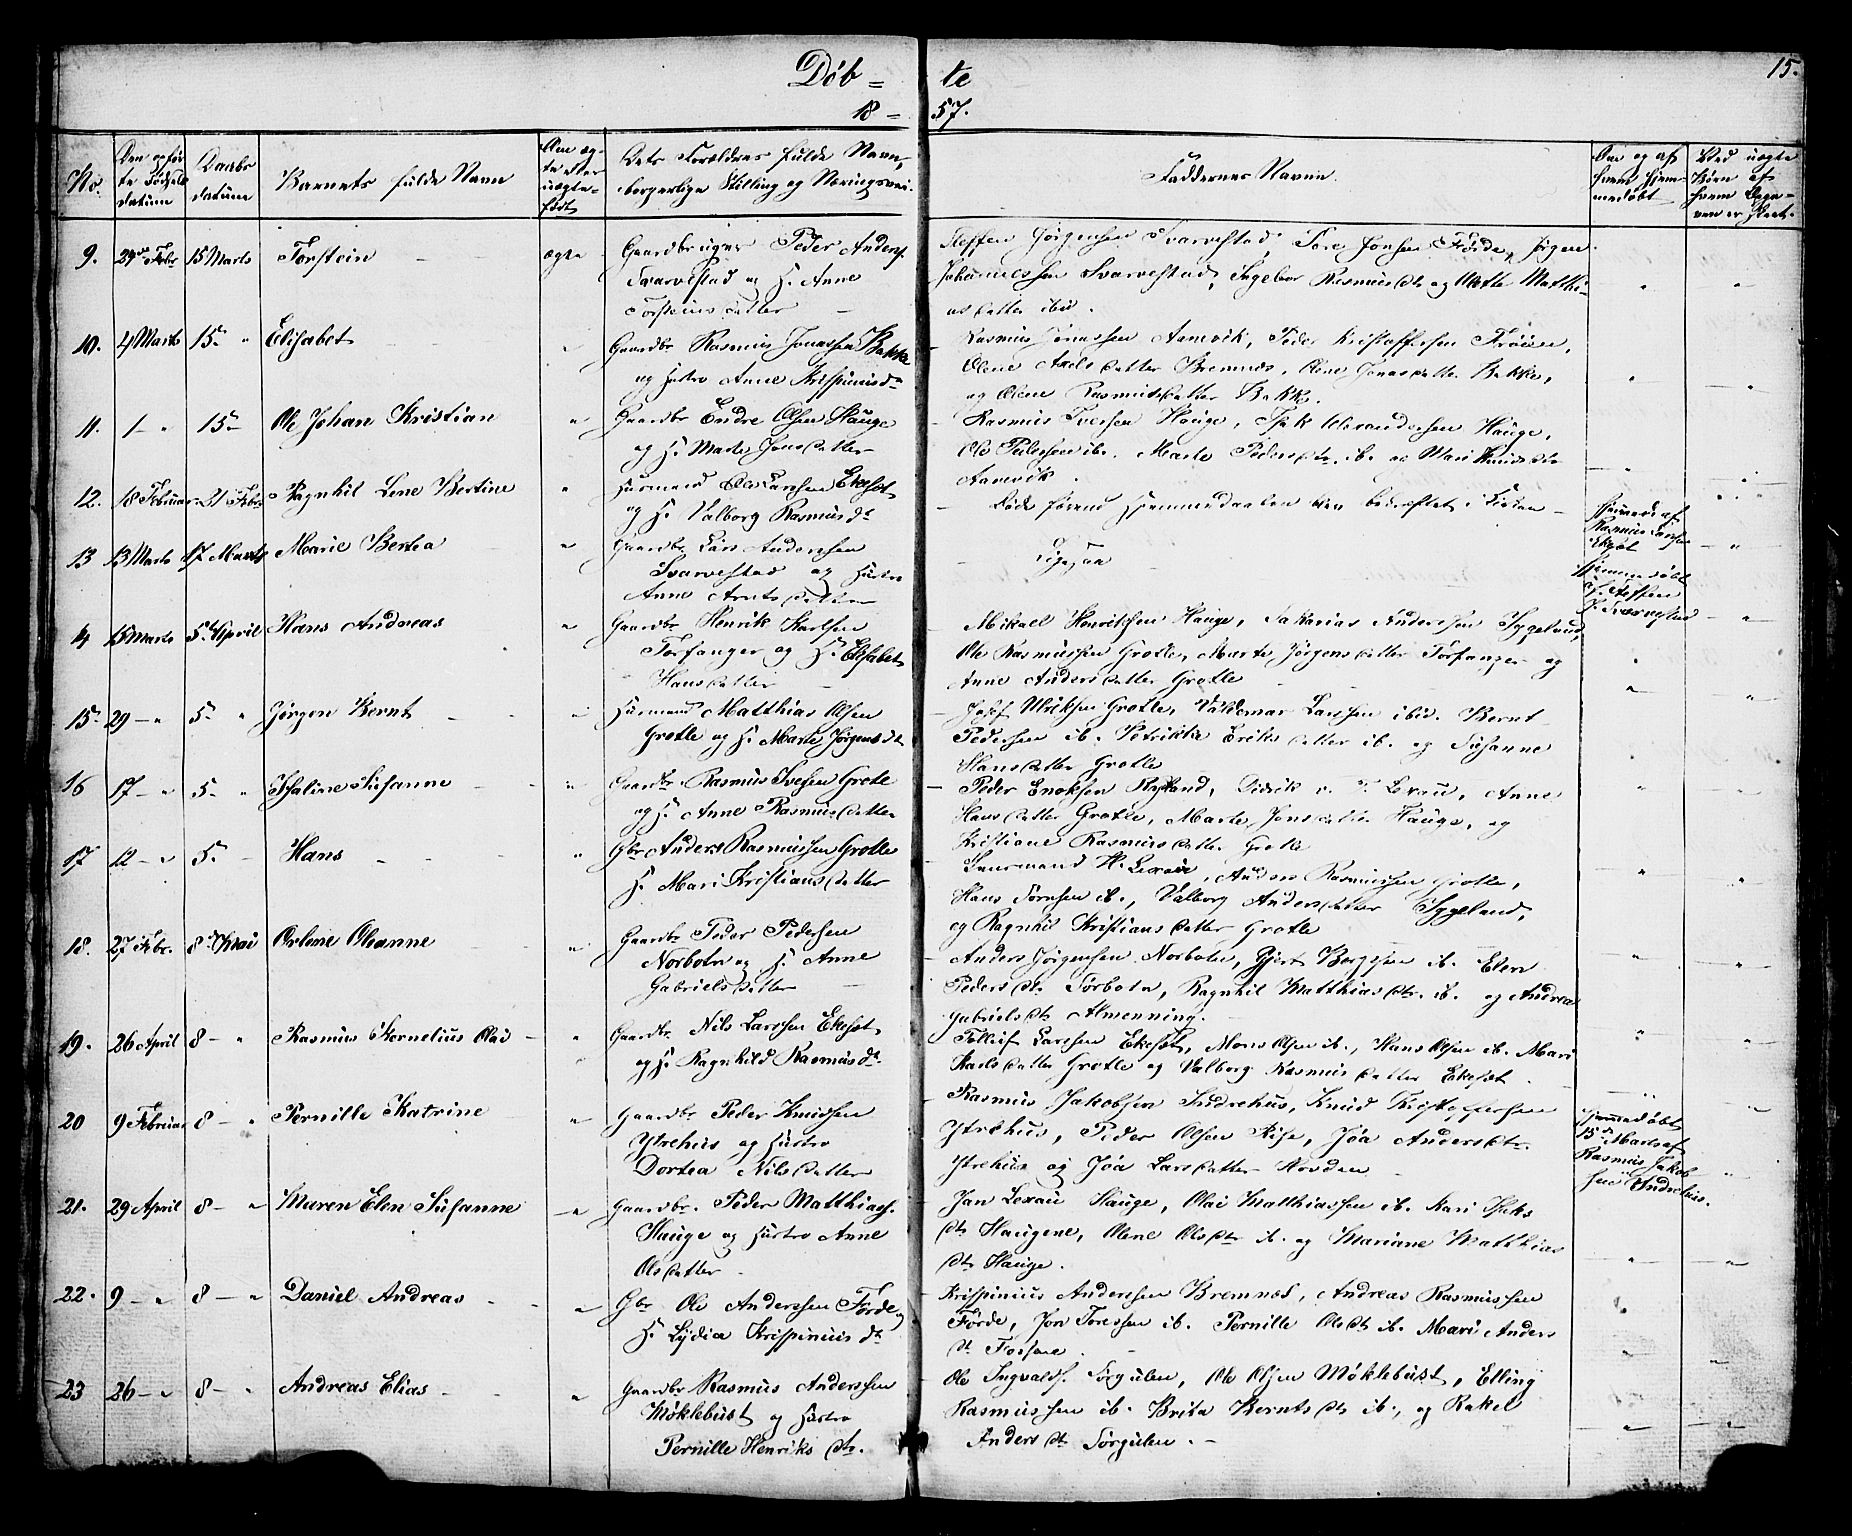 Døb-
te
15.
18-
57.
No.
Datum
Daabs
datum
Barnets fulde Navn
Den æg-
te eller
uægte-
født
Dets Forældres fulde Navn,
borgerlige Stilling og Næringsvei.
Faddernes Navne.
Om og af
hvem hjem-
medøbt
Ved uægte
Børn af
hvem Opga-
ven er skeet.
9. Febr 15 Marts Torstein ægte Gaardbruger Peder Anders.
Svarvestad og H. Anne
Torsteinsdatter
Steffen Jørgensen Svarvestad, Tore Jonsen Førde, Jørgen
Johannessen Svarvestad, Ingebor Rasmusdtr og Matthi-
asdatter ibid.
10. 4 Marts 15 Elisabet Gaardbr Rasmus Jonassen Bakke
og Hustro Anne Krispinusdr
Rasmus Jonassen Aamvik, Peder Kristoffersen
Olene Axelsdatter Bremnes, Oline Jonasdatter Bakke,
og Olene Rasmusdatter Bakke.
11. 1 15 Ole Johan Kristian Gaardbr Endre Olsen Hauge
og H. Marte Jonsdatter
Rasmus Iversen Hauge, Isak Alexandersen Hauge,
Ole Pedersen ib. Marte Pedersdtr. ib. og Mari
Aamvik.
12. 18 Februar 21 Febr Ragnhil Lene Bertine Husmand Ole Larssen Ekesøt
og H. Valborg Rasmusdr
Døde førend Hjemmedaaben blev bekræftet i Kirken
Hjemmedr. af
Rasmus Larssen
Ekesøt
13 13 Marts 17 Marts Marie Bertea Gaardbr Lars Anderssen
Svarvestad og Hustro
Anne
Ligesaa
Hjemmedøbt
af Steffen
J. Svarvestad
14 15 Marts 5. April Hans Andreas Gaardbr Henrik Karlsen
Torfanger og H. Elisabet
Hansdatter
Mikael Henriksen Hauge, Sakarias Anderssen Sygelund,
Ole Rasmussen Grotle, Marte Jørgensdatter Torfanger og
Anne Andersdatter Grotle
15 29 5 Jørgen Bernt Husmand Matthias Olsen
Grotle og H. Marte Jørgensdt
Josef Ulriksen Grotle, Valdemar Larssen ibid. Bernt
Pedersen ib. Petrikke Eriksdatter ib. og Susanne
Hansdatter Grotle
16 17 5 Thaline Susanne Gaardbr. Rasmus Iversen Grotle
og H. Anne Rasmusdatter
Peder Enoksen Rysland, Didrik Lexau, Anne
Hansdatter Grotle, Marte Jonsdatter Hauge, og
Kristiane Rasmusdatter Grotle
17 12 5 Hans Gbr Anders Rasmussen Grotle
H. Mari Kristiansdatter
Lensmand H. Lexau, Anders Rasmussen Grotle,
Hans ib., Valborg Andersdatter Sygelund,
og Ragnhil Kristiansdatter Grotle
18. 27 Febr. 8 Mai Orlene Oleanne Gaardbr Peder Pedersen
Norbotn og H. Anne
Gabrielsdatter
Anders Jørgensen Norbotn, Gjert Børgesen ib. Elen
Pedersdt. Sørbotn, Ragnhil Matthiasdtr. ib. og Andrea
Gabrielsdt Almenning.
19. 26 April 8 Rasmus Kornelius Olai Gaardbr. Nils Larssen Ekesøt
og H. Ragnhild Rasmusdr.
Tolleif Larssen Ekesøt, Mons Olsen ib., Hans Olsen ib. Mari
Karlsdatter Grotle og Valborg Rasmusdatter Ekesøt.
20 9 Februar 8 Pernille Katrine Gaardbr Peder Knudsen
Ytrehus og Hustro
Dortea Nilsdatter
Rasmus Jakobsen Indrehus, Knud Kristoffersen
Ytrehus, Peder Olsen Rise, Jóa Andersdtr.
Ytrehus og Jóa Larsdatter Novden
Hjemmedøbt
15 Marts af
Rasmus Jakob-
sen Indrehus.
21. 29 April 8 Maren Elen Susanne Gaardbr. Peder Matthiass.
Hauge og Hustro Anne
Olsdatter
Jan Lexau Hauge, Olai Matthiassen ib. Kari Isaks
dtr Haugene, Olene Olsdtr ib. og Mariane Matthias
dtr Hauge.
22. 9 8 Daniel Andreas Gbr Ole Anderssen Førde og
H. Lydia Krispinusdr
Krispinius Anderssen Bremnes, Andreas Rasmussen
Førde, Jon Toressen ib. Pernille Olsdt ib. Mari Anders
dt
23 26 8 Andreas Elias Gaardbr Rasmus Anderssen
Møklebust og Hustro
Pernille Henriksdtr.
Ole Ingvalds. Sørgulen, Ole Olsen Møklebust, Elling
Rasmussen ib. Brita Berntsdtr ib., og Rakel
Andersdt Sørgulen.